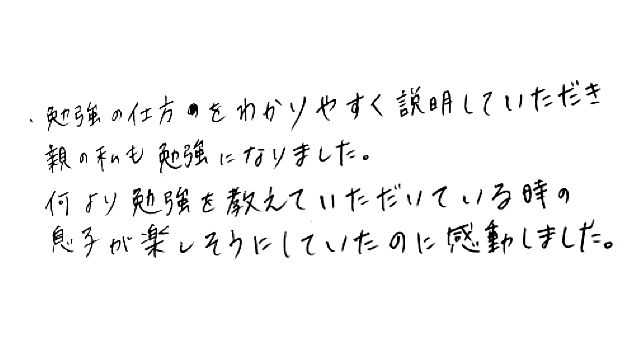 ・勉強の仕方をわかりやすく説明していただき
親の私も勉強になりました。
何より勉強を教えていただいている時の
息子が楽しそうにしていたのに感動しました。